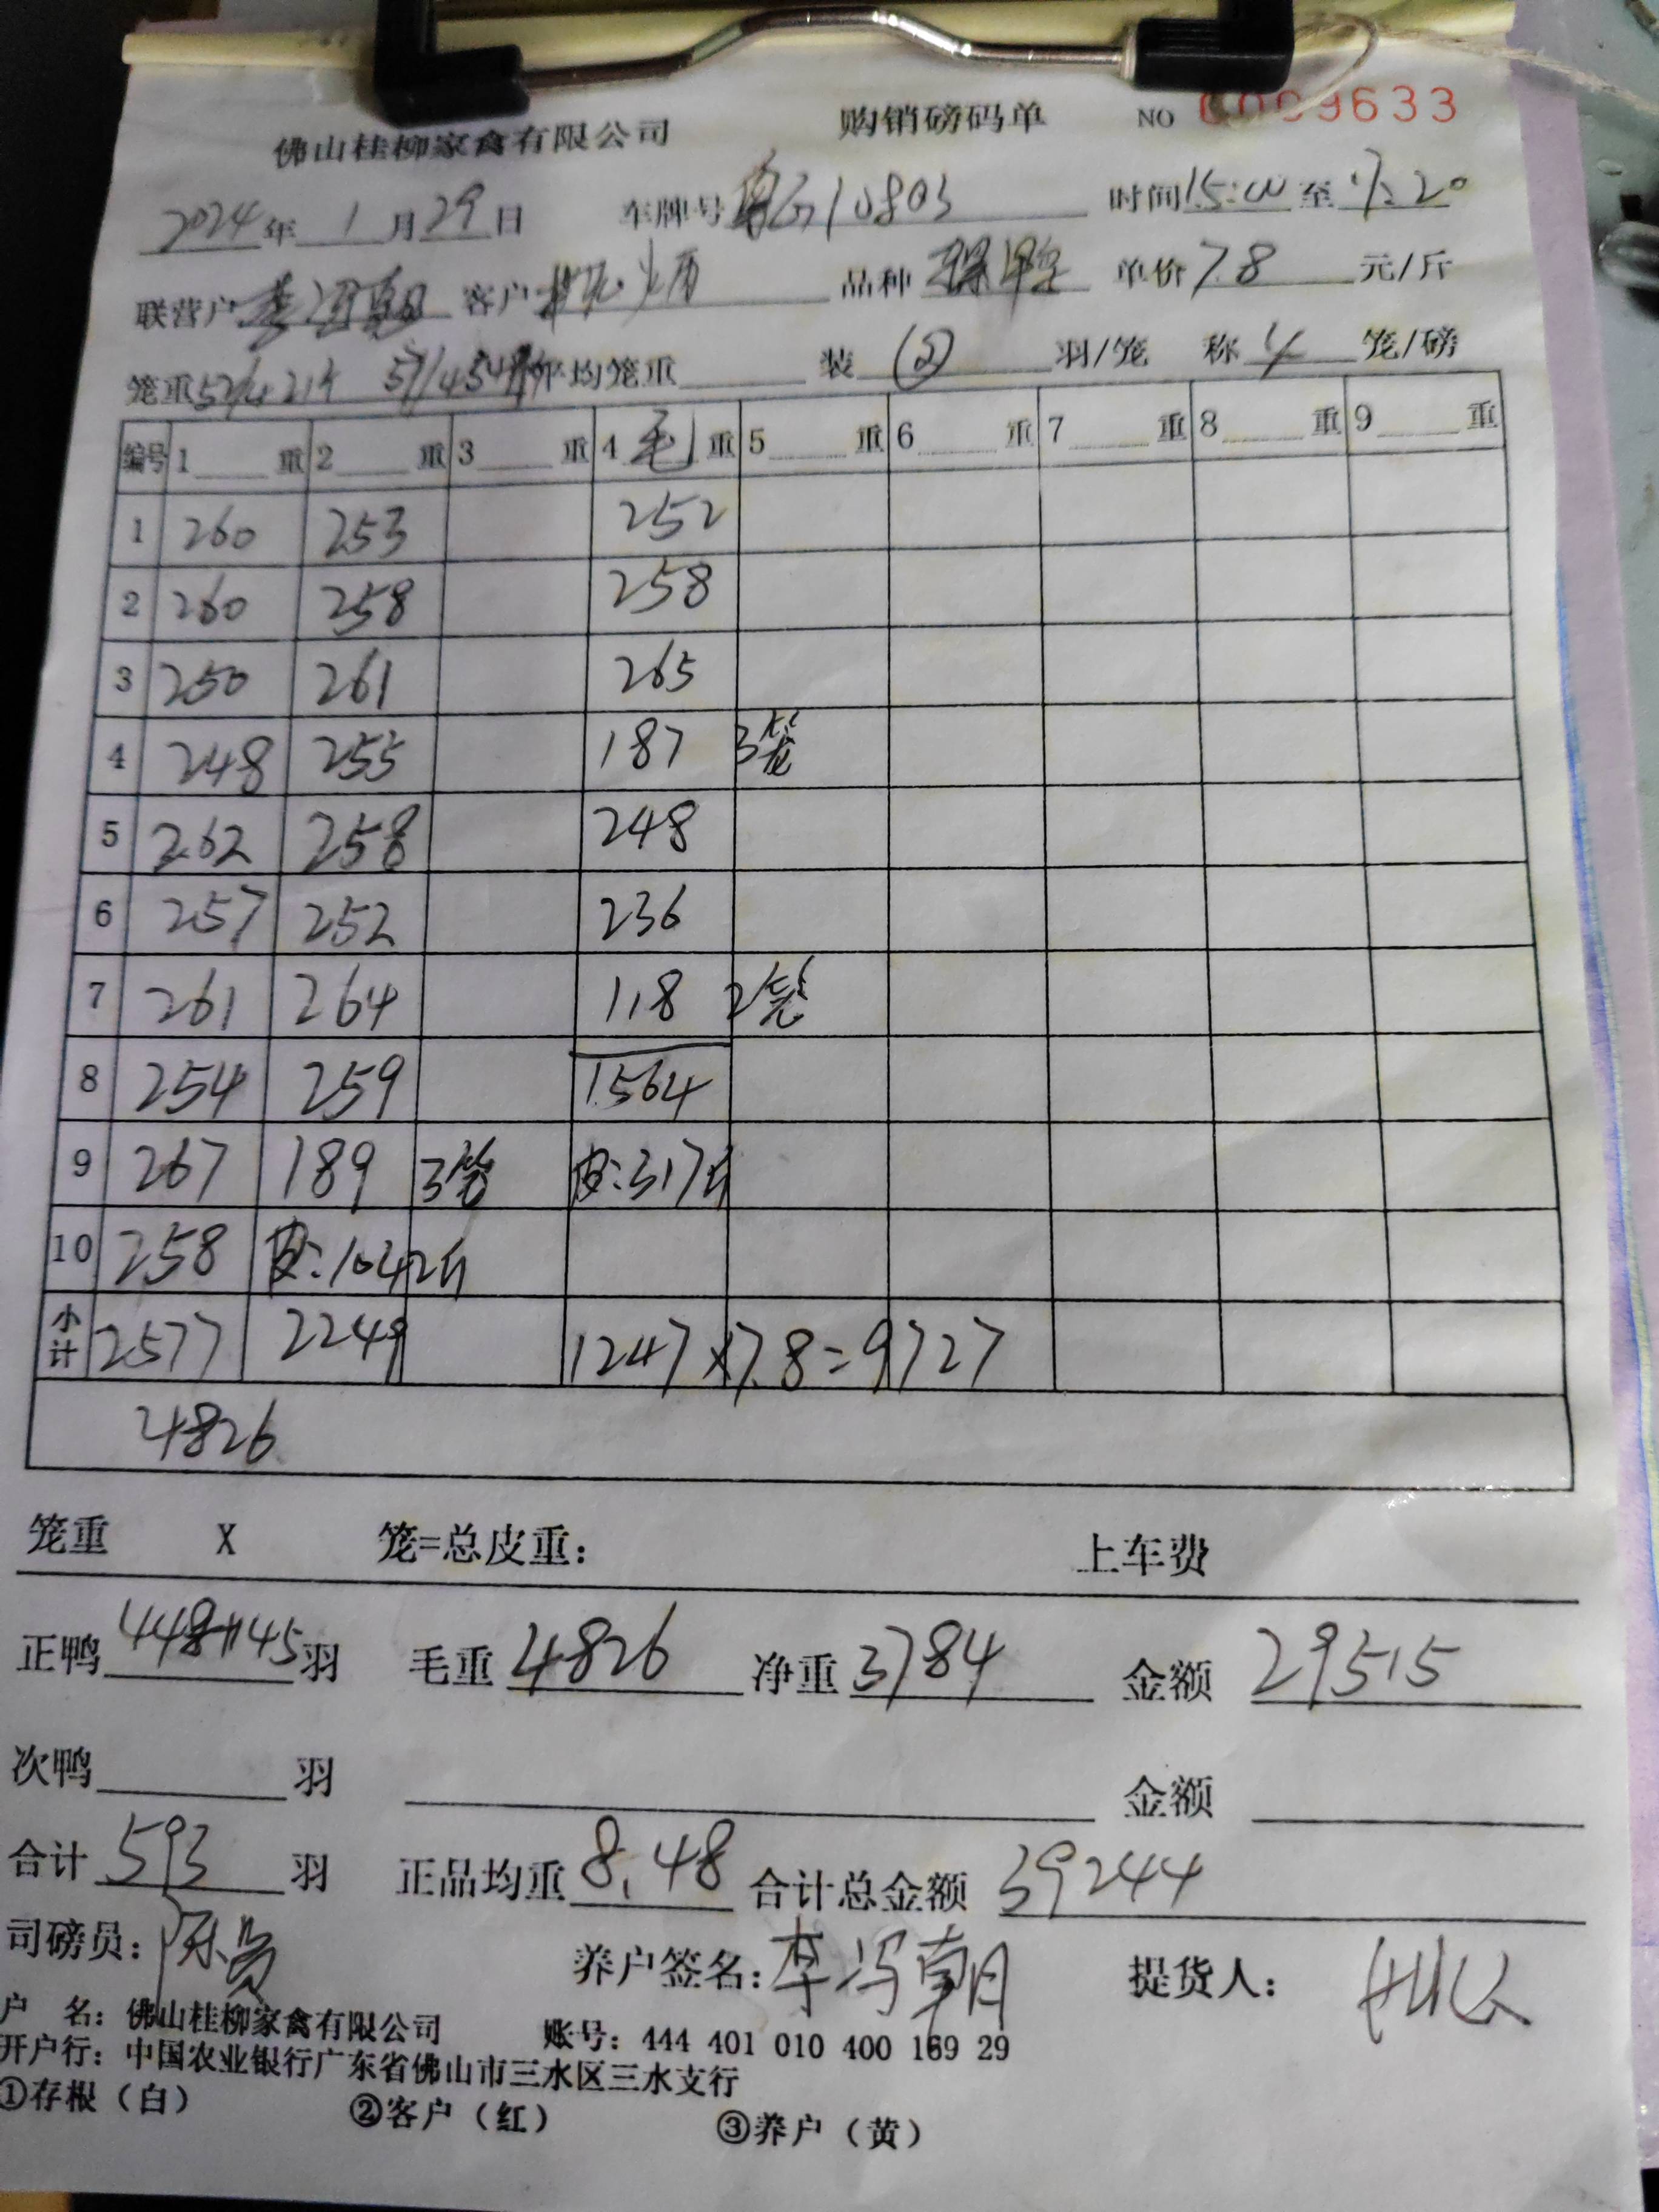 佛山桂柳家禽有限公司 购销磅码单 NO 0009633
2024年1月29日 车牌号 10803 时间15:00至17:20
联营户 李冯朝 客户 品种 单价7.8元/斤
笼重 平均笼重 装 羽/笼 称4笼/磅
编号 1 重 2 重 3 重 4毛重 5 重 6 重 7 重 8 重 9 重
1 260 253 252
2 260 258 258
3 250 261 265
4 248 255 187 3笼
5 262 258 248
6 257 252 236
7 261 264 118 2笼
8 254 259 1564
9 267 189 3笼 皮:317斤
10 258 皮:1042斤
小计 2577 2249 1247×7.8=9727
4826
笼重 X 笼=总皮重: 上车费
正鸭448+145羽 毛重4826 净重3784 金额29515
次鸭 羽 金额
合计593羽 正品均重8.48 合计总金额39244
司磅员: 养户签名:李冯朝 提货人:
户 名:佛山桂柳家禽有限公司 账号:444 401 010 400 169 29
开户行:中国农业银行广东省佛山市三水区三水支行
①存根(白) ②客户(红) ③养户(黄)